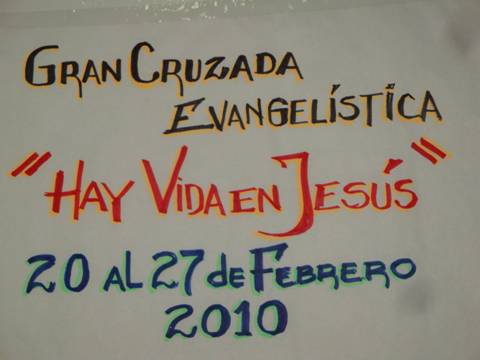 GRAN CRUZADA
EVANGELÍSTICA
"HAY VIDA EN JESÚS"
20 AL 27 de FEBRERO
2010